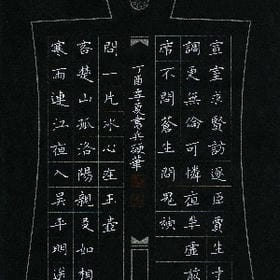 宣室求賢訪逐臣賈生才
調更無倫可憐夜半虛前
席不問蒼生問鬼神
寒雨連江夜入吴平明送
客楚山孤洛陽親友如相
問一片冰心在玉壺
丁酉